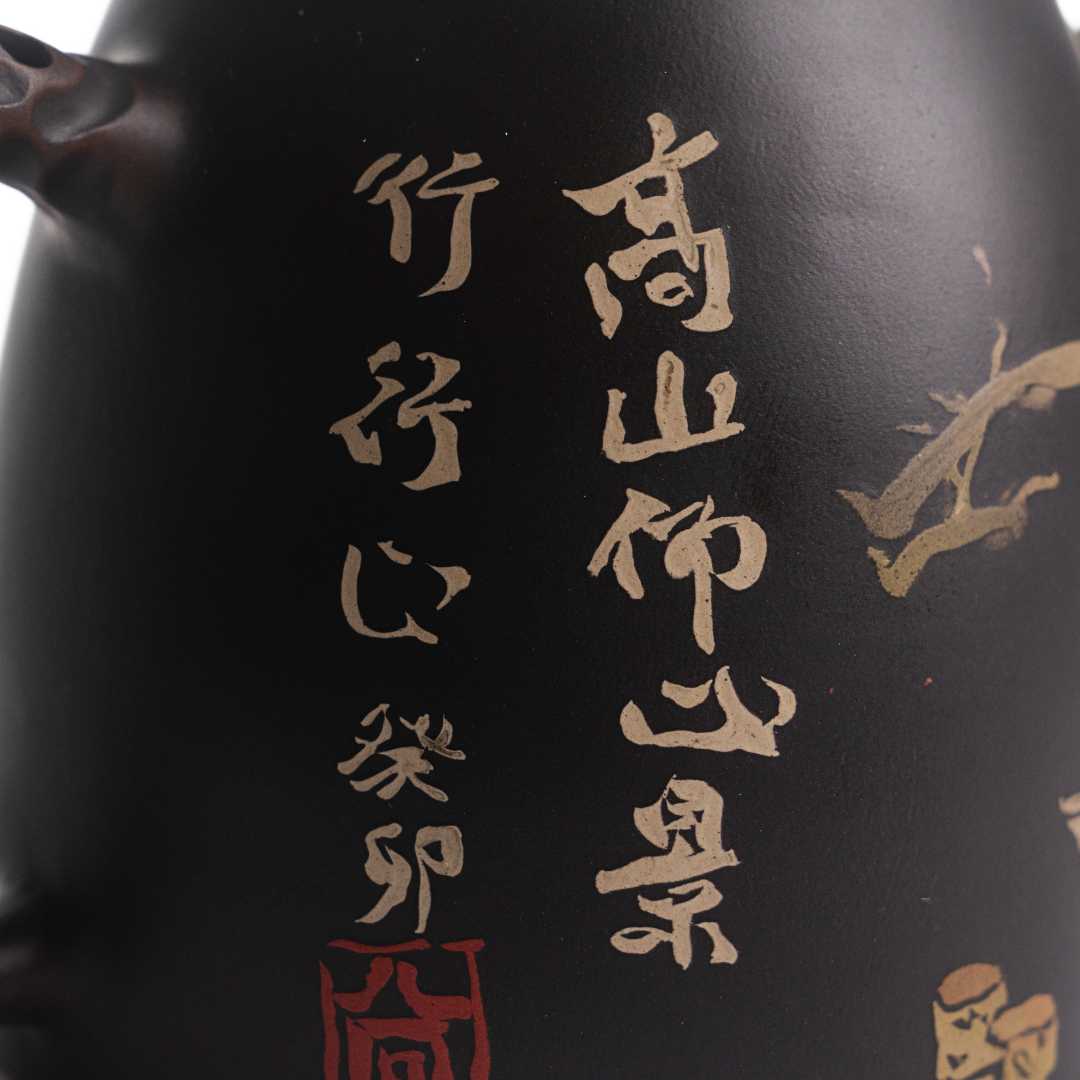 高山仰止景
行行止癸卯